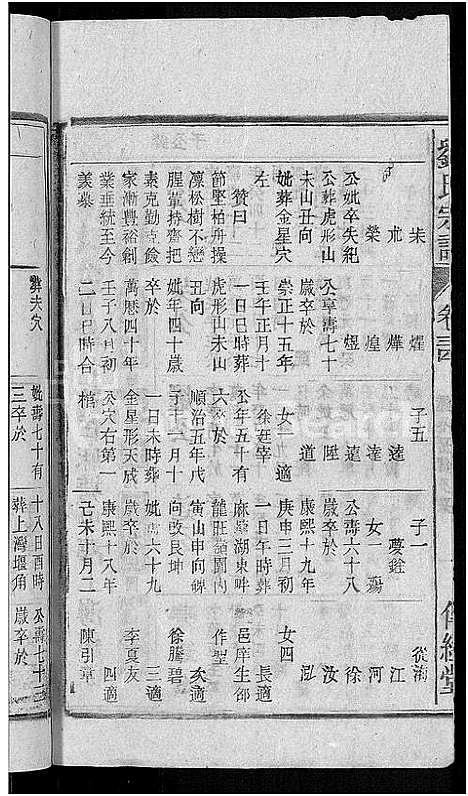 劉氏宗譜 卷三
傳經堂
公妣卒失紀
公葬虎形山
未山丑向
妣葬金星穴
左
贊曰
節堅柏舟操
凜松樹不戀
腥葷持齋把
素克勤克儉
家漸豐裕創
業垂統至今
義慕
榮 朮 柒
煜 煌 燁 燿
公享壽七十
歲卒於
崇正十五年
壬午正月十
一日巳時葬
虎形山未山
丑向
妣年四十歲
卒於
萬曆四十年
壬子八月初
二日巳時合
棺
子五
逵 達 遠 陞 道
女一適
徐在宰
公年五十有
六卒於
順治五年戊
子十二月十
一日未時葬
金星形天成
公穴右第一
子一
夢銓
女一殤
公壽六十八
歲卒於
康熙十九年
庚申三月初
一日午時葬
麻榮湖東畔
龍莊詣園內
寅山申向碑
向改艮坤
妣壽六十九
歲卒於
康熙十八年
己未十月二
從海
江
河
徐
汝
泓
女四
長適
邑庠生邵
作聖
次適
徐騰碧
三適
李夏友
四適
陳引章
葬夫穴
妣壽七十有
三卒於
十八日酉時
葬上灣堰角
公壽七十三
歲卒於